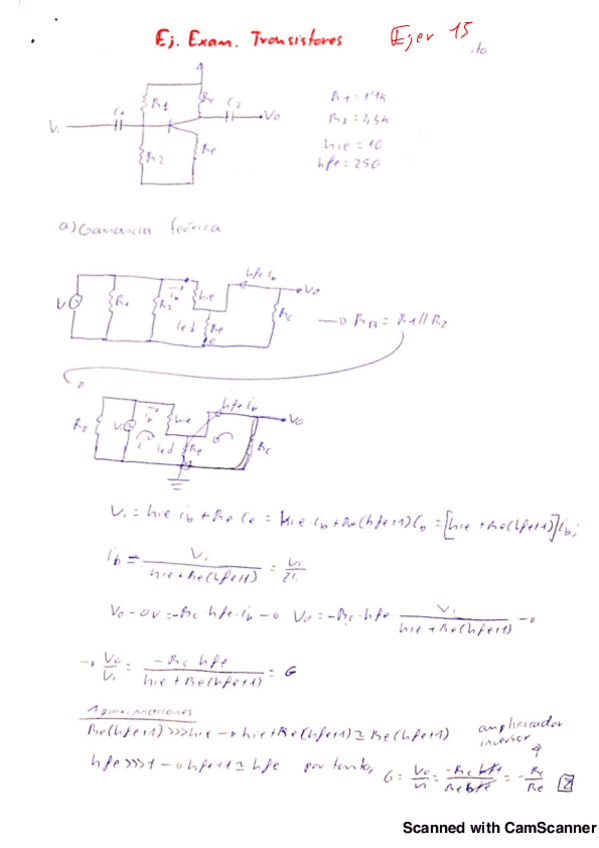 Ej. Exam. Transistores Ejer 15
.to
R1 Rc C2 Vo
C1
Vi
R2 Re
R1 = 1'1k
R2 = 3,3k
hie = 10
hfe = 250
a) Ganancia teórica
hfe ib
ib hie Vo
V R1 R2 Re Rc
→ RB = R1 // R2
hfe ib
ib hie Vo
Re Rc
Vi = hie ib + Re ie = hie ib + Re(hfe+1) ib = [hie + Re(hfe+1)] ib;
ib = Vi / (hie + Re(hfe+1)) =
Vo - 0V = -Rc · hfe · ib → Vo = -Rc · hfe · Vi / (hie + Re(hfe+1)) →
→ Vo/Vi = -Rc hfe / (hie + Re(hfe+1)) = G
Aproximaciones
Re(hfe+1) >>> hie → hie + Re(hfe+1) ≃ Re(hfe+1)
amplificador
inversor
hfe >>> 1 → hfe+1 ≃ hfe por tanto, G = Vo/Vi = -Rc hfe / Re hfe = -Rc/Re 2
Scanned with CamScanner